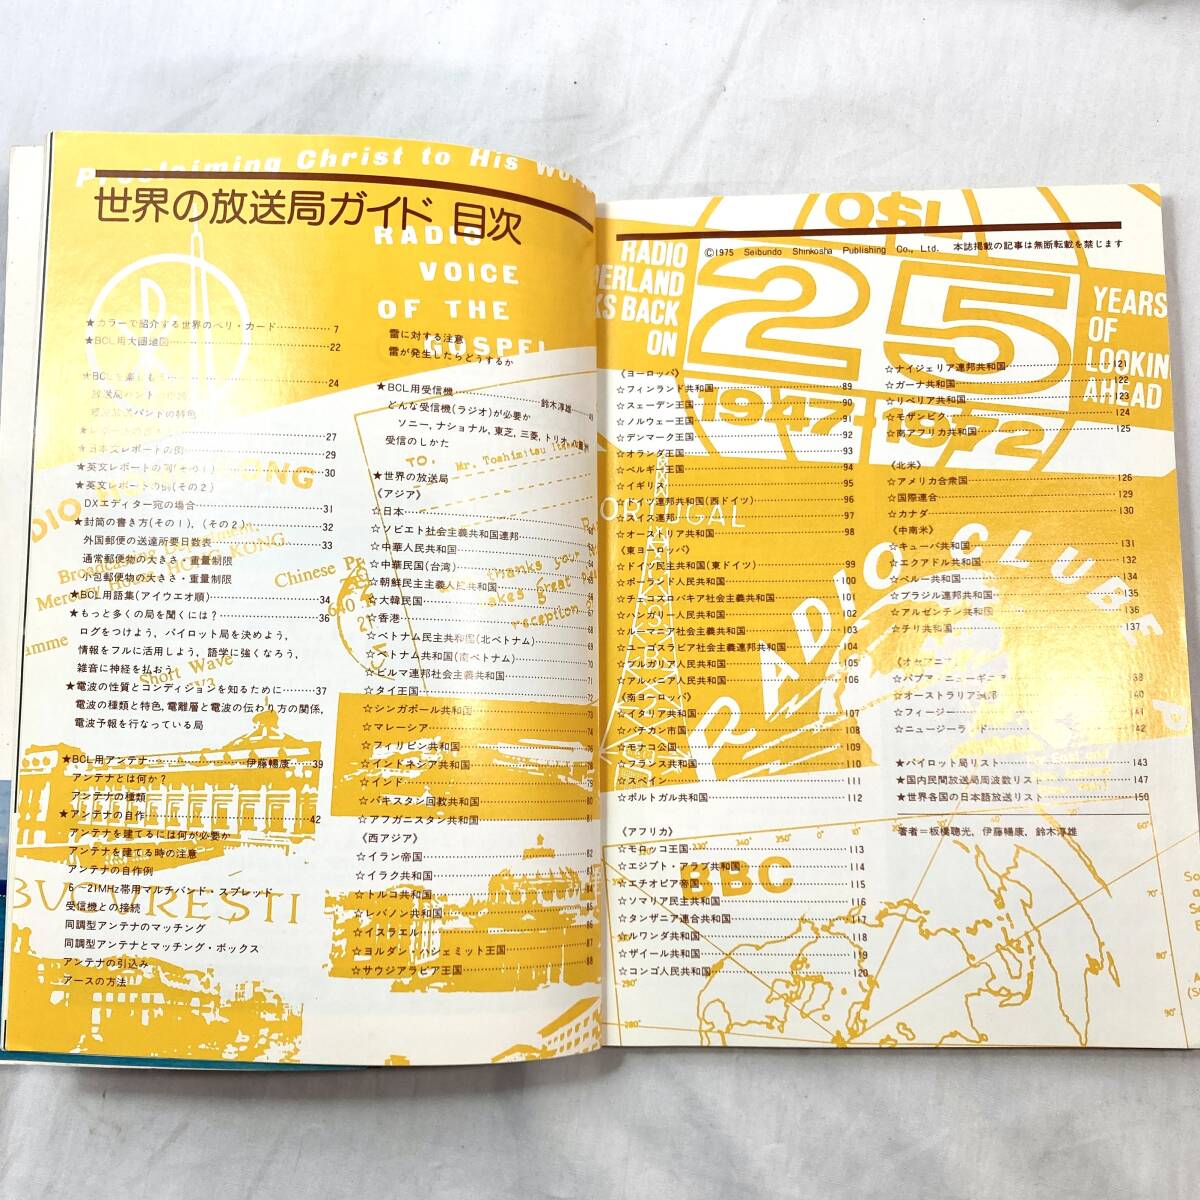 Proclaiming Christ to His Wor
世界の放送局ガイド 目次
RADIO
VOICE
OF THE
GOSPEL
★カラーで紹介する世界のベリ・カード 7
★BCL用大圏地図 22
24
27
★日本文レポートの例 29
★英文レポートの例(その1) 30
★英文レポートの例(その2)
DXエディター宛の場合 31
★封筒の書き方(その1), (その2) 32
外国郵便の送達所要日数表 33
通常郵便物の大きさ・重量制限
小包郵便物の大きさ・重量制限
★BCL用語集(アイウエオ順) 34
★もっと多くの局を聞くには? 36
ログをつけよう, パイロット局を決めよう,
情報をフルに活用しよう, 語学に強くなろう,
雑音に神経を払おう
★電波の性質とコンディションを知るために 37
電波の種類と特色, 電離層と電波の伝わり方の関係,
電波予報を行なっている局
★BCL用アンテナ 伊藤暢康 39
アンテナとは何か?
アンテナの種類
★アンテナの自作 42
アンテナを建てるには何が必要か
アンテナを建てる時の注意
アンテナの自作例
6~21MHz帯用マルチバンド・スプレッド
受信機との接続
同調型アンテナのマッチング
同調型アンテナとマッチング・ボックス
アンテナの引込み
アースの方法
雷に対する注意
雷が発生したらどうするか
★BCL用受信機 鈴木淳雄 49
どんな受信機(ラジオ)が必要か
ソニー, ナショナル, 東芝, 三菱, トリオ
受信のしかた
TO:
Mr. Toshimitsu
★世界の放送局
《アジア》
☆日本
☆ソビエト社会主義共和国連邦
☆中華人民共和国
☆中華民国(台湾)
☆朝鮮民主主義人民共和国
☆大韓民国
☆香港 67
☆ベトナム民主共和国(北ベトナム) 68
☆ベトナム共和国(南ベトナム) 69
☆ビルマ連邦社会主義共和国 70
☆タイ王国 72
☆シンガポール共和国 73
☆マレーシア 74
☆フィリピン共和国 76
☆インドネシア共和国 78
☆インド 79
☆パキスタン回教共和国 80
☆アフガニスタン共和国 81
《西アジア》
☆イラン帝国 82
☆イラク共和国 83
☆トルコ共和国 84
☆レバノン共和国 85
☆イスラエル 86
☆ヨルダン・ハシェミット王国 87
☆サウジアラビア王国 88
Chinese Pr
Short Wave
BUCUREȘTI
QSL
©1975 Seibundo Shinkosha Publishing Co., Ltd. 本誌掲載の記事は無断転載を禁じます
RADIO
ERLAND
KS BACK
ON
25
YEARS
OF
LOOKIN
AHEAD
1947-1972
《ヨーロッパ》
☆フィンランド共和国 89
☆スェーデン王国 90
☆ノルウェー王国 91
☆デンマーク王国 92
☆オランダ王国 93
☆ベルギー王国 94
☆イギリス 95
☆ドイツ連邦共和国(西ドイツ) 96
☆スイス連邦 97
☆オーストリア共和国 98
《東ヨーロッパ》
☆ドイツ民主共和国(東ドイツ) 99
☆ポーランド人民共和国 100
☆チェコスロバキア社会主義共和国 101
☆ハンガリー人民共和国 102
☆ルーマニア社会主義共和国 103
☆ユーゴスラビア社会主義連邦共和国 104
☆ブルガリア人民共和国 105
☆アルバニア人民共和国 106
《南ヨーロッパ》
☆イタリア共和国 107
☆バチカン市国 108
☆モナコ公国 109
☆フランス共和国 110
☆スペイン 111
☆ポルトガル共和国 112
《アフリカ》
☆モロッコ王国 113
☆エジプト・アラブ共和国 114
☆エチオピア帝国 115
☆ソマリア民主共和国 116
☆タンザニア連合共和国 117
☆ルワンダ共和国 118
☆ザイール共和国 119
☆コンゴ人民共和国 120
☆ナイジェリア連邦共和国 121
☆ガーナ共和国 122
☆リベリア共和国 123
☆モザンビク 124
☆南アフリカ共和国 125
《北米》
☆アメリカ合衆国 126
☆国際連合 129
☆カナダ 130
《中南米》
☆キューバ共和国 131
☆エクアドル共和国 132
☆ペルー共和国 134
☆ブラジル連邦共和国 135
☆アルゼンチン共和国 136
☆チリ共和国 137
《オセアニア》
☆パプア・ニューギニア 138
☆オーストラリア連邦 140
☆フィージー 141
☆ニュージーランド 142
★パイロット局リスト 143
★国内民間放送局周波数リスト 147
★世界各国の日本語放送リスト 150
著者=板橋聰光, 伊藤暢康, 鈴木淳雄
PORTUGAL
RADIO CLUBE
BBC